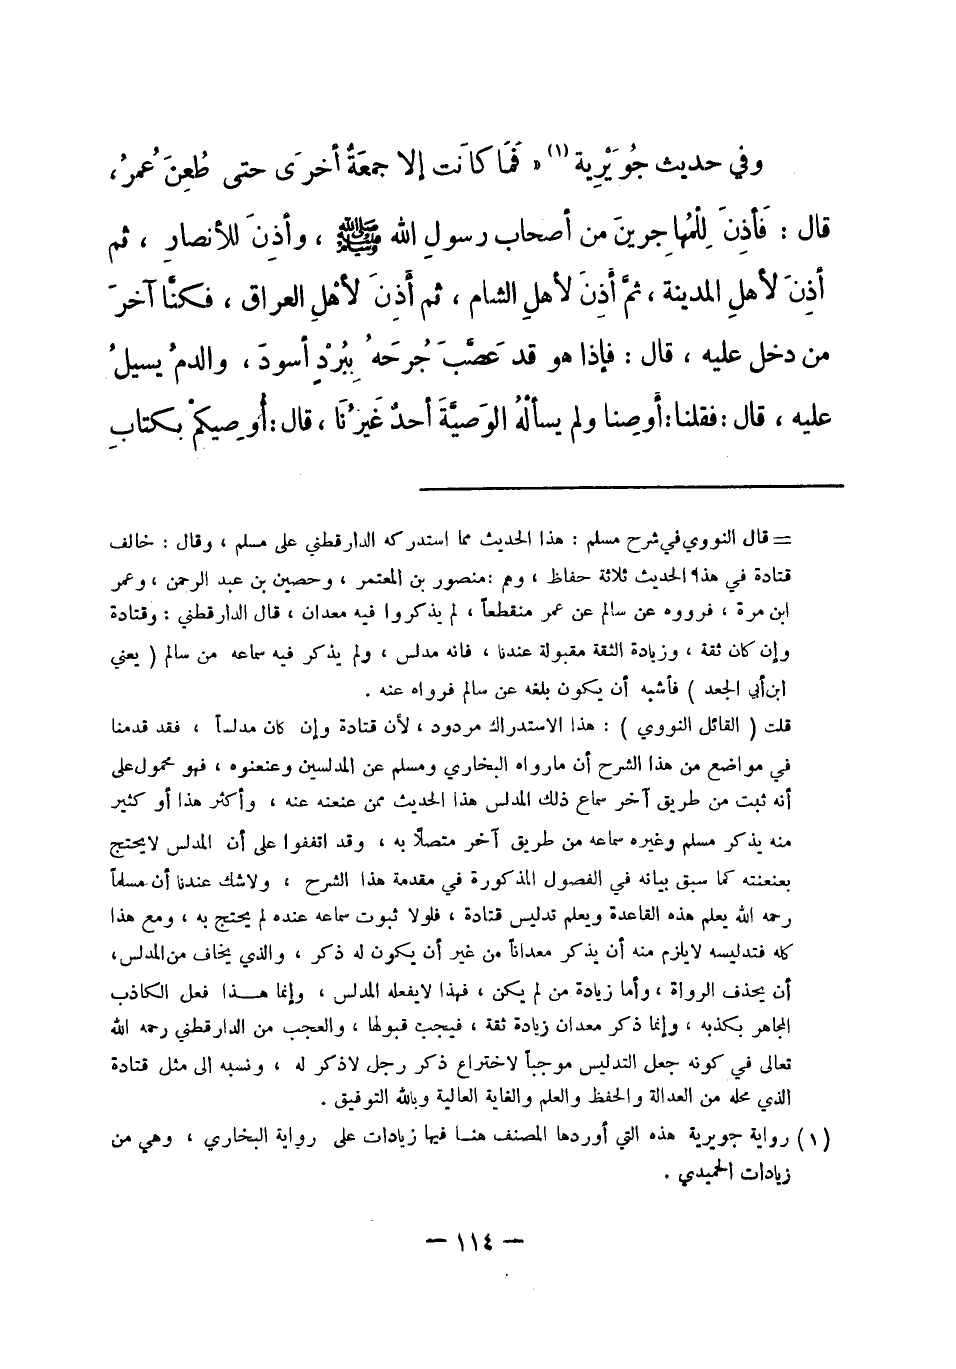 وفي حديث جُوَيْرِية (١) « فَمَا كانَت إلا جمعَةٌ أخرَى حتى طُعِنَ عُمرُ،
قال : فَأذِنَ لِلْمُهاجِرينَ من أصحاب رسولِ الله ﷺ ، وأذِنَ للأنصارِ ، ثم
أذِنَ لأهلِ المدينة ، ثمَّ أَذِنَ لأهلِ الشام ، ثم أَذِنَ لأهْلِ العراق ، فكنَّا آخرَ
من دخل عليه ، قال : فإذا هو قد عَصَّبَ جُرحَهُ بِبُرْدٍ أسودَ ، والدمُ يسيلُ
عليه ، قال : فقلنا : أَوصِنا ولم يسألْهُ الوَصِيَّةَ أحدٌ غَيرُنَا ، قال : أُوصِيكمْ بكتابِ
= قال النووي في شرح مسلم : هذا الحديث مما استدركه الدارقطني على مسلم ، وقال : خالف
قتادة في هذا الحديث ثلاثة حفاظ ، وهم : منصور بن المعتمر ، وحصين بن عبد الرحمن ، وعمر
ابن مرة ، فرووه عن سالم عن عمر منقطعاً ، لم يذكروا فيه معدان ، قال الدارقطني : وقتادة
وإن كان ثقة ، وزيادة الثقة مقبولة عندنا ، فانه مدلس ، ولم يذكر فيه سماعه من سالم ( يعني
ابن أبي الجعد ) فأشبه أن يكون بلغه عن سالم فرواه عنه .
قلت ( القائل النووي ) : هذا الاستدراك مردود ، لأن قتادة وإن كان مدلساً ، فقد قدمنا
في مواضع من هذا الشرح أن مارواه البخاري ومسلم عن المدلسين وعنعنوه ، فهو محمول على
أنه ثبت من طريق آخر سماع ذلك المدلس هذا الحديث ممن عنعنه عنه ، وأكثر هذا أو كثير
منه يذكر مسلم وغيره سماعه من طريق آخر متصلاً به ، وقد اتفقوا على أن المدلس لايحتج
بعنعنته كما سبق بيانه في الفصول المذكورة في مقدمة هذا الشرح ، ولاشك عندنا أن مسلماً
رحمه الله يعلم هذه القاعدة ويعلم تدليس قتادة ، فلولا ثبوت سماعه عنده لم يحتج به ، ومع هذا
كله فتدليسه لايلزم منه أن يذكر معداناً من غير أن يكون له ذكر ، والذي يخاف من المدلس ،
أن يحذف الرواة ، وأما زيادة من لم يكن ، فهذا لايفعله المدلس ، وإنما هذا فعل الكاذب
المجاهر بكذبه ، وإنما ذكر معدان زيادة ثقة ، فيجب قبولها ، والعجب من الدارقطني رحمه الله
تعالى في كونه جعل التدليس موجباً لاختراع ذكر رجل لاذكر له ، ونسبه الى مثل قتادة
الذي محله من العدالة والحفظ والعلم والغاية العالية وبالله التوفيق .
(١) رواية جويرية هذه التي أوردها المصنف هنا فيها زيادات على رواية البخاري ، وهي من
زيادات الحميدي .
– ١١٤ –